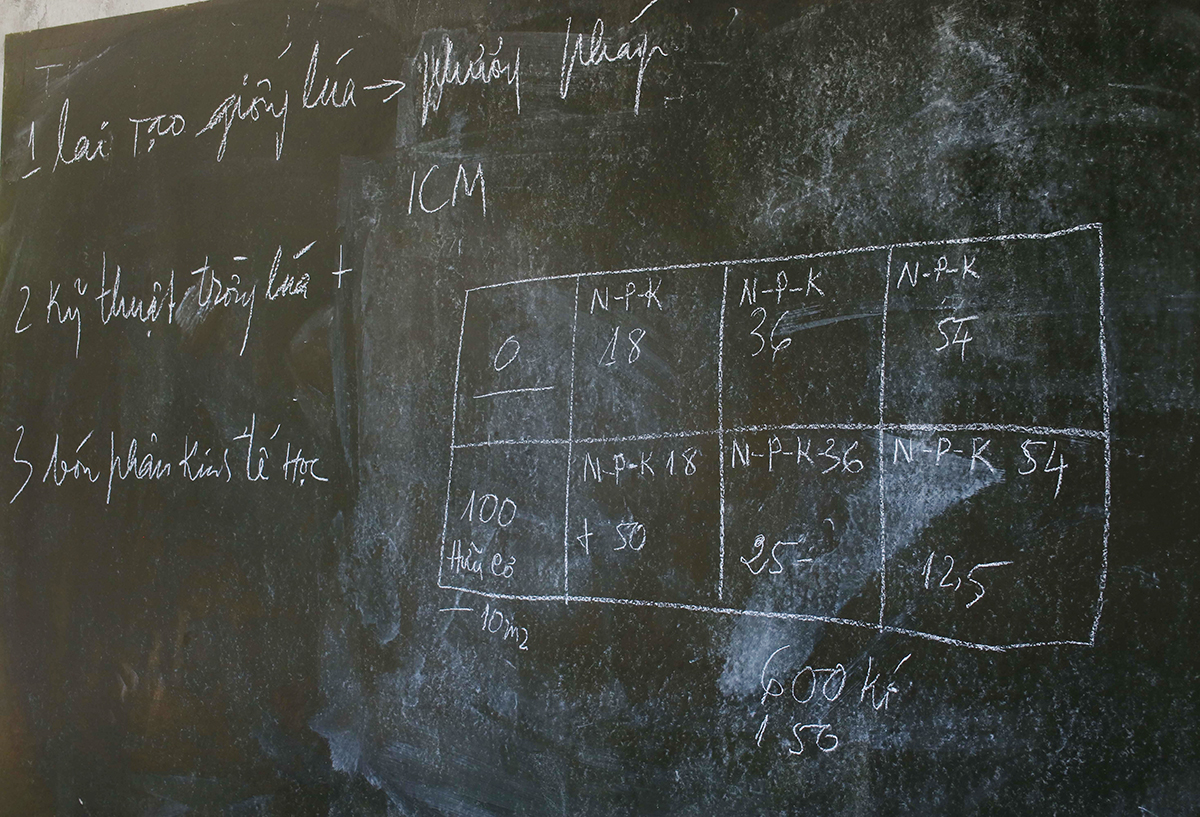 1 lai tạo giống lúa → phương pháp
ICM
2 Kỹ thuật trồng lúa +
3 bón phân Kinh tế Học
0
N-P-K
18
N-P-K
36
N-P-K
54
100
Hữu cơ
N-P-K 18
+ 50
N-P-K-36
25-
N-P-K 54
12,5
10m2
600 kí
150